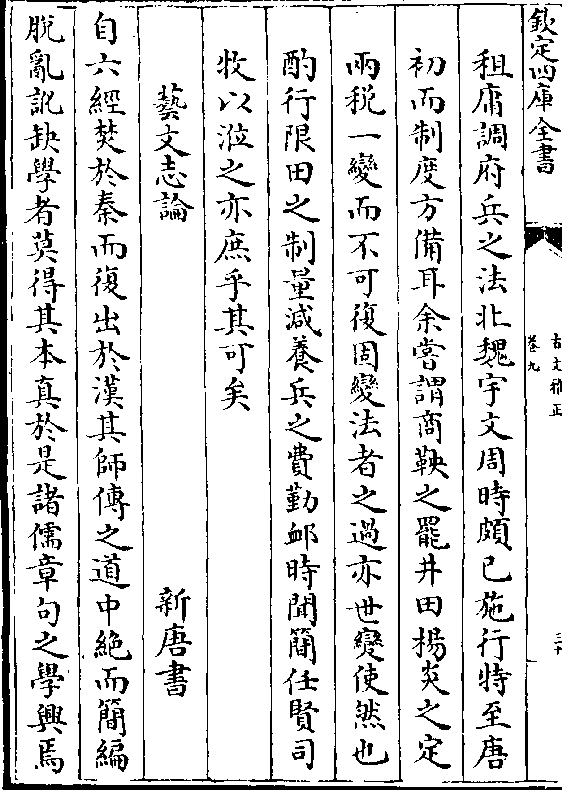 欽定四庫全書
古文雅正
卷九
三十
租庸調府兵之法北魏宇文周時頗已施行特至唐
初而制度方備耳余嘗謂商鞅之罷井田楊炎之定
兩税一變而不可復固變法者之過亦世變使然也
酌行限田之制量減養兵之費勤䘏時聞簡任賢司
牧以涖之亦庶乎其可矣
藝文志論 新唐書
自六經焚於秦而復出於漢其師傳之道中絶而簡編
脱亂訛缺學者莫得其本真於是諸儒章句之學興焉